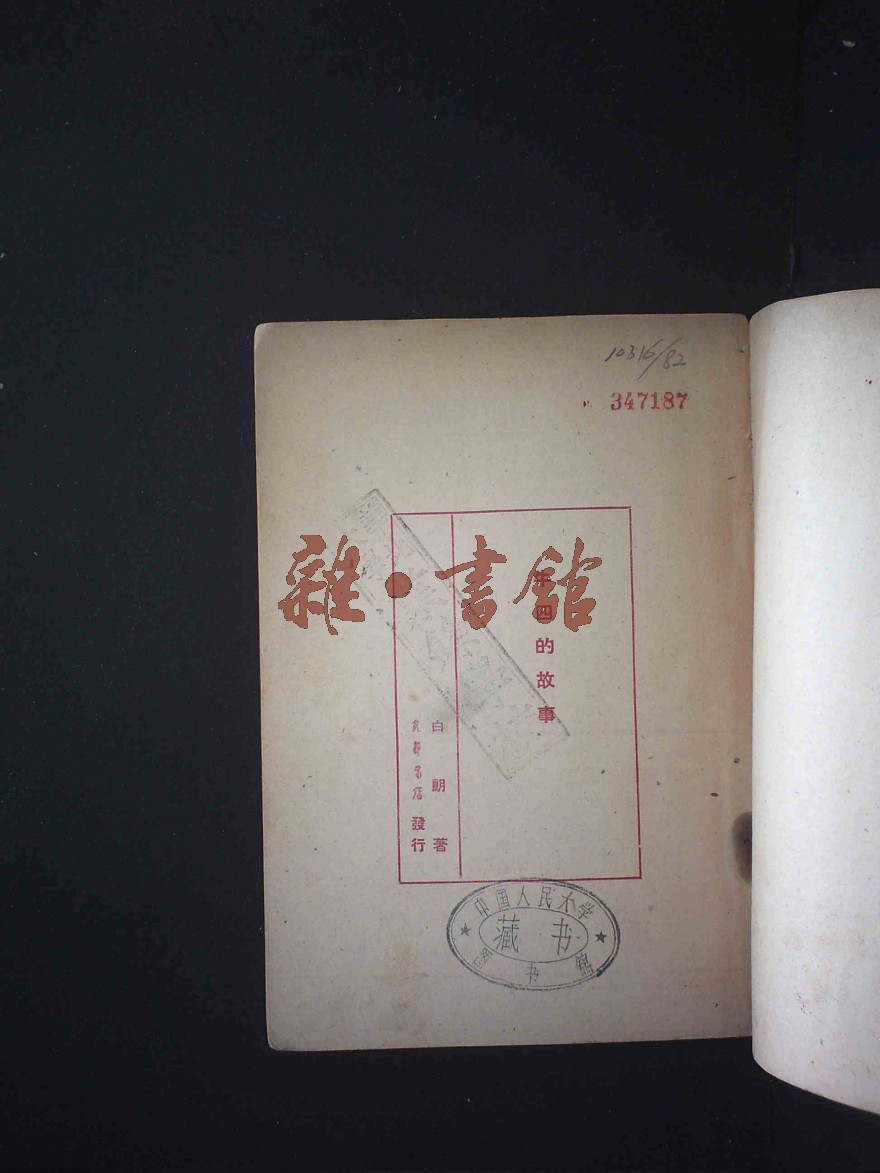 10316/82
347187
牛四的故事
白朗著
光華書店發行
雜·書館
中国人民大学
藏书
图书馆